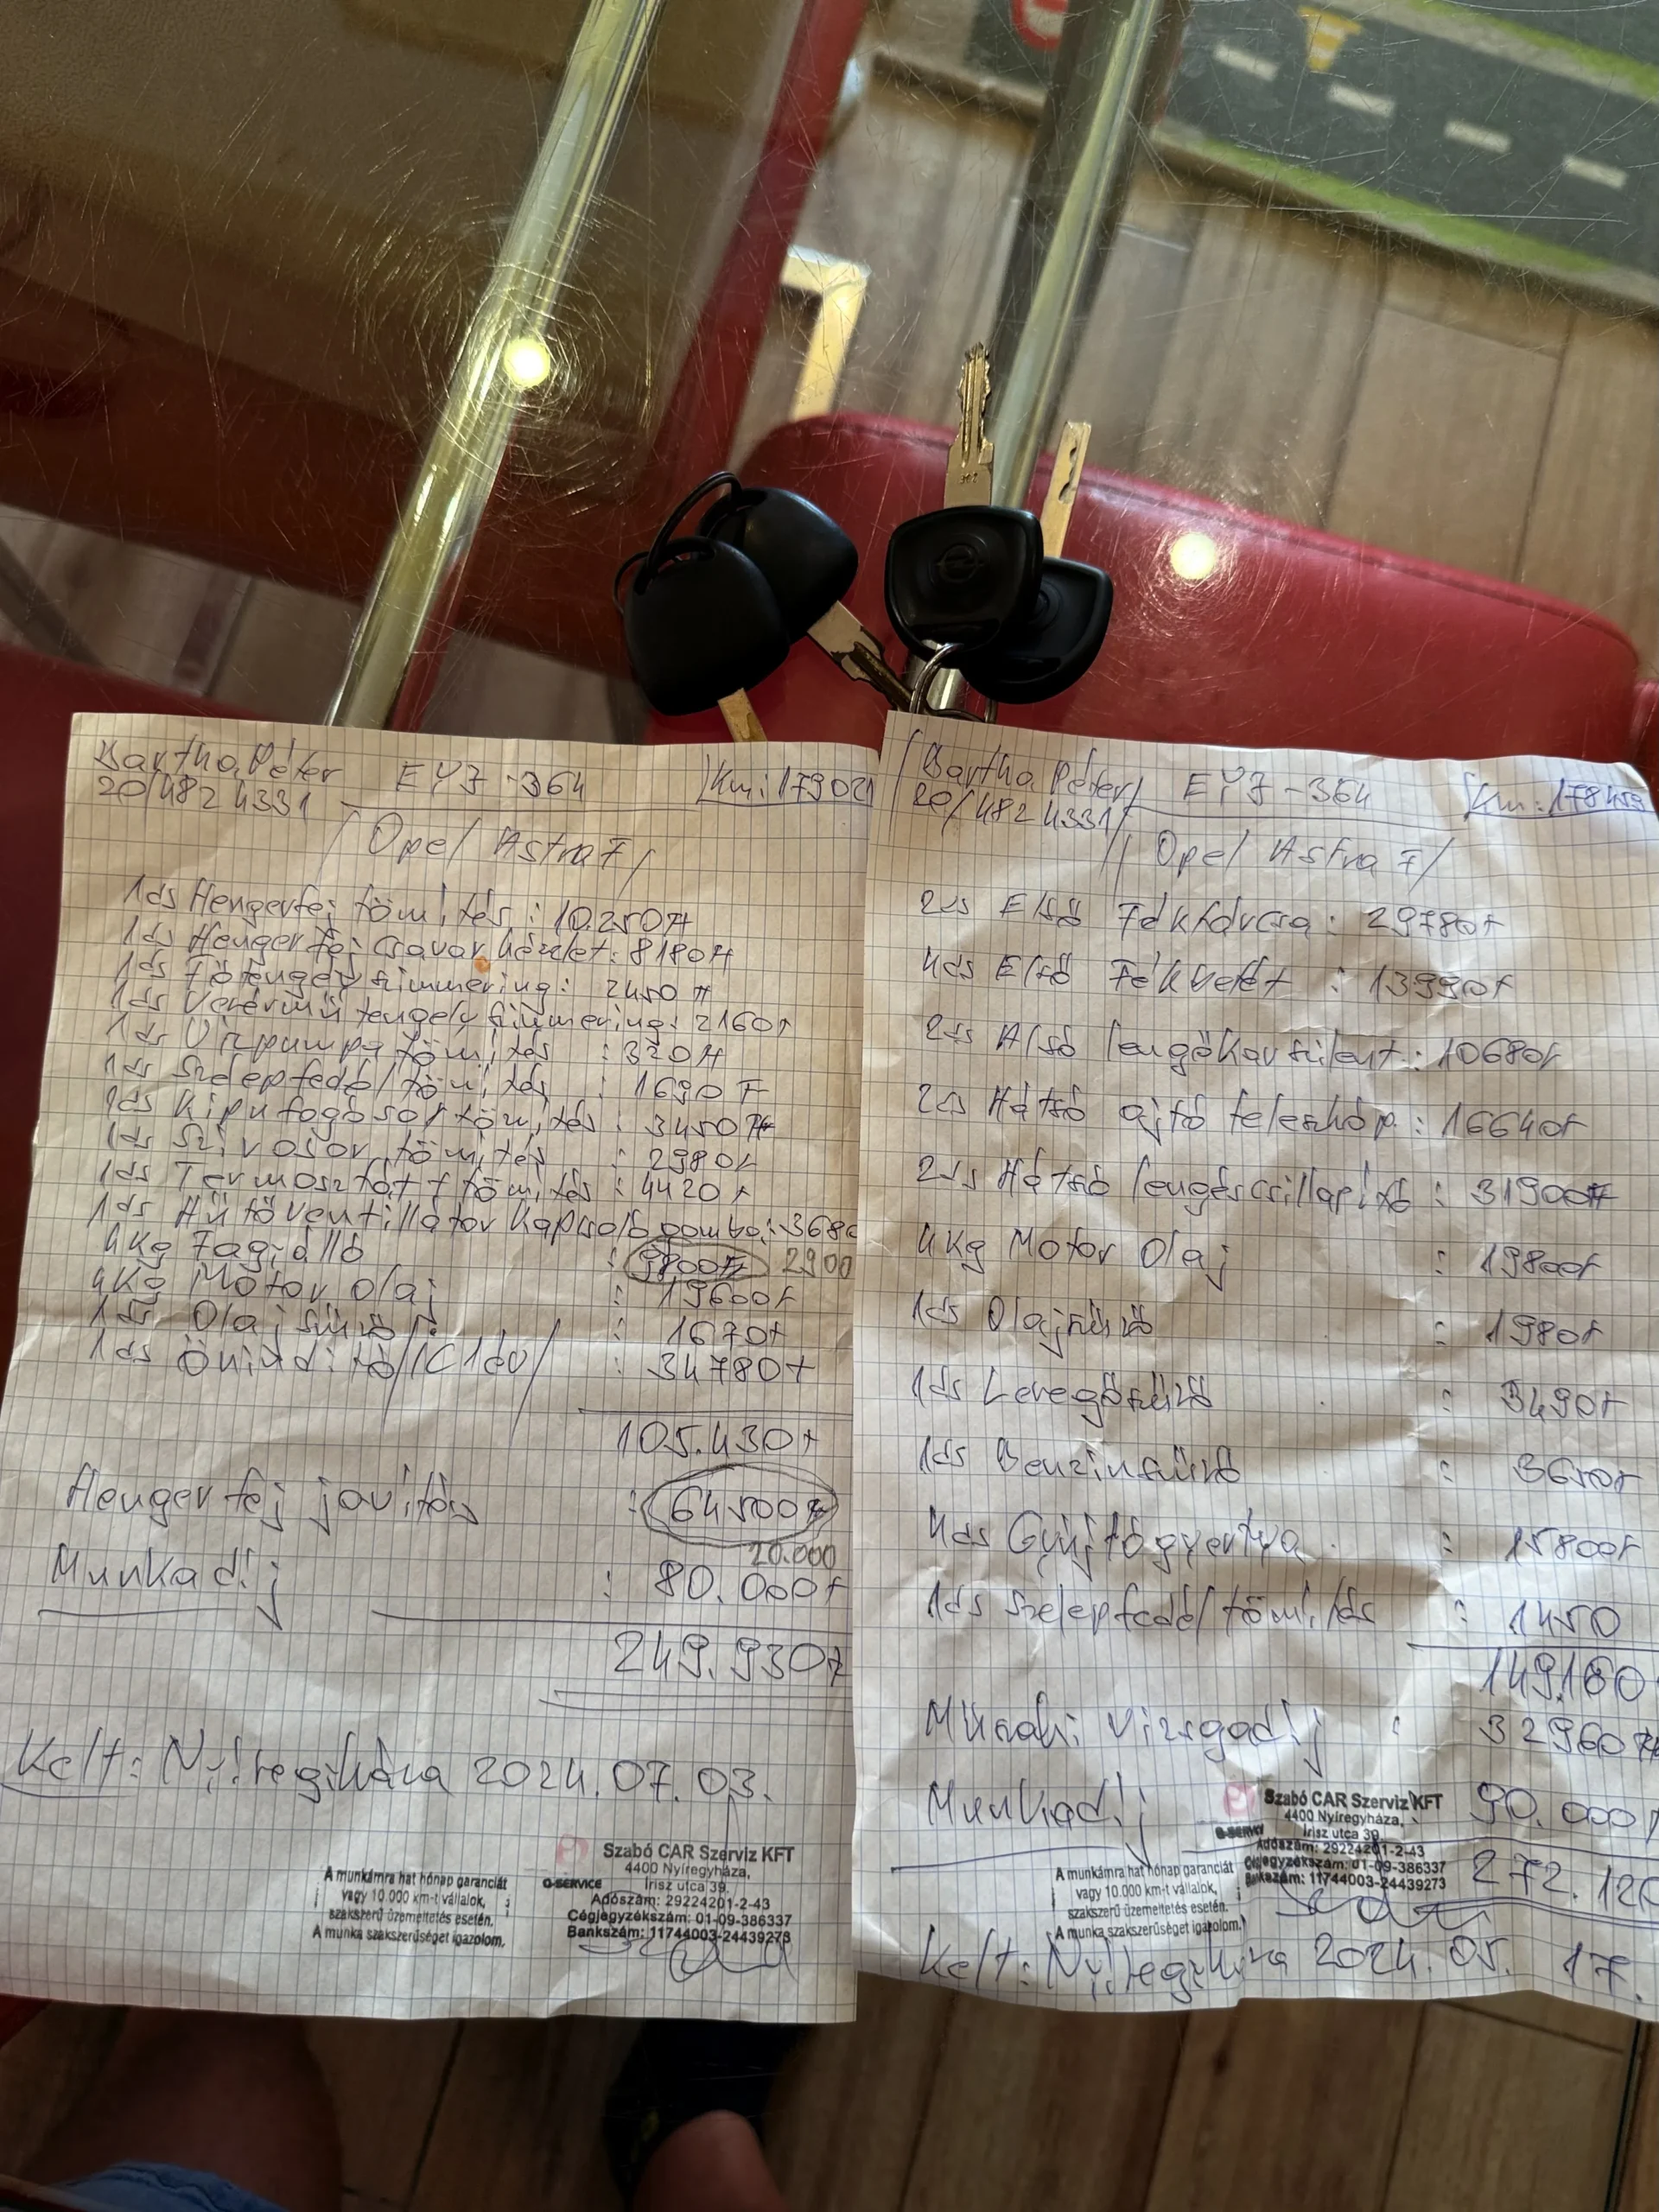 Bartha Péter EYJ-364 Km: 179021
20/482 4331
/Opel Astra F/
1ds Hengerfej tömítés : 10.250Ft
1ds Hengerfej csavar készlet : 8180Ft
1ds Főtengely szimmering : 2450Ft
1ds Vezérmű tengely szimmering : 2160F
1ds Vízpumpa tömítés : 320Ft
1ds Szelepfedél tömítés : 1690F
1ds Kipufogósor tömítés : 3450Ft
1ds Szívósor tömítés : 2980F
1ds Termosztát + tömítés : 4420F
1ds Hűtőventillátor Kapcsoló gomba : 3680
4Kg Fagyálló : 9800Ft 2900
4Kg Motor olaj : 19600F
1ds Olajszűrő : 1670F
1ds Önindító /C1től/ : 34780F
105.430F
Hengerfej javítás : 64500F
20.000
Munkadíj : 80.000F
249.930F
Kelt: Nyíregyháza 2024.07.03.
A munkámra hat hónap garanciát
vagy 10.000 km-t vállalok,
szakszerű üzemeltetés esetén.
A munka szakszerűséget igazolom.
G-SERVICE
Szabó CAR Szerviz KFT
4400 Nyíregyháza,
Írisz utca 39.
Adószám: 29224201-2-43
Cégjegyzékszám: 01-09-386337
Bankszám: 11744003-24439273
Bartha Péter EYJ-364 Km: 178459
20/482 4331
/Opel Astra F/
2ds Első Féktárcsa : 29780F
4ds Első Fékbetét : 13990F
2ds Alsó lengőkar szilent : 10680F
2ds Hátsó ajtó teleszkóp : 16640F
2ds Hátsó lengéscsillapító : 31900Ft
4Kg Motor olaj : 19800F
1ds Olajszűrő : 1980F
1ds Levegőszűrő : 3490F
1ds Benzinszűrő : 3650F
4ds Gyújtógyertya : 15800F
1ds Szelepfedél tömítés : 1450
149.160
Műszaki Vizsgadíj : 32960Ft
Munkadíj 90.000F
272.120
Szabó CAR Szerviz KFT
4400 Nyíregyháza,
Írisz utca 39.
Adószám: 29224201-2-43
Cégjegyzékszám: 01-09-386337
Bankszám: 11744003-24439273
G-SERVICE
A munkámra hat hónap garanciát
vagy 10.000 km-t vállalok,
szakszerű üzemeltetés esetén.
A munka szakszerűséget igazolom.
Kelt: Nyíregyháza 2024.05.17.